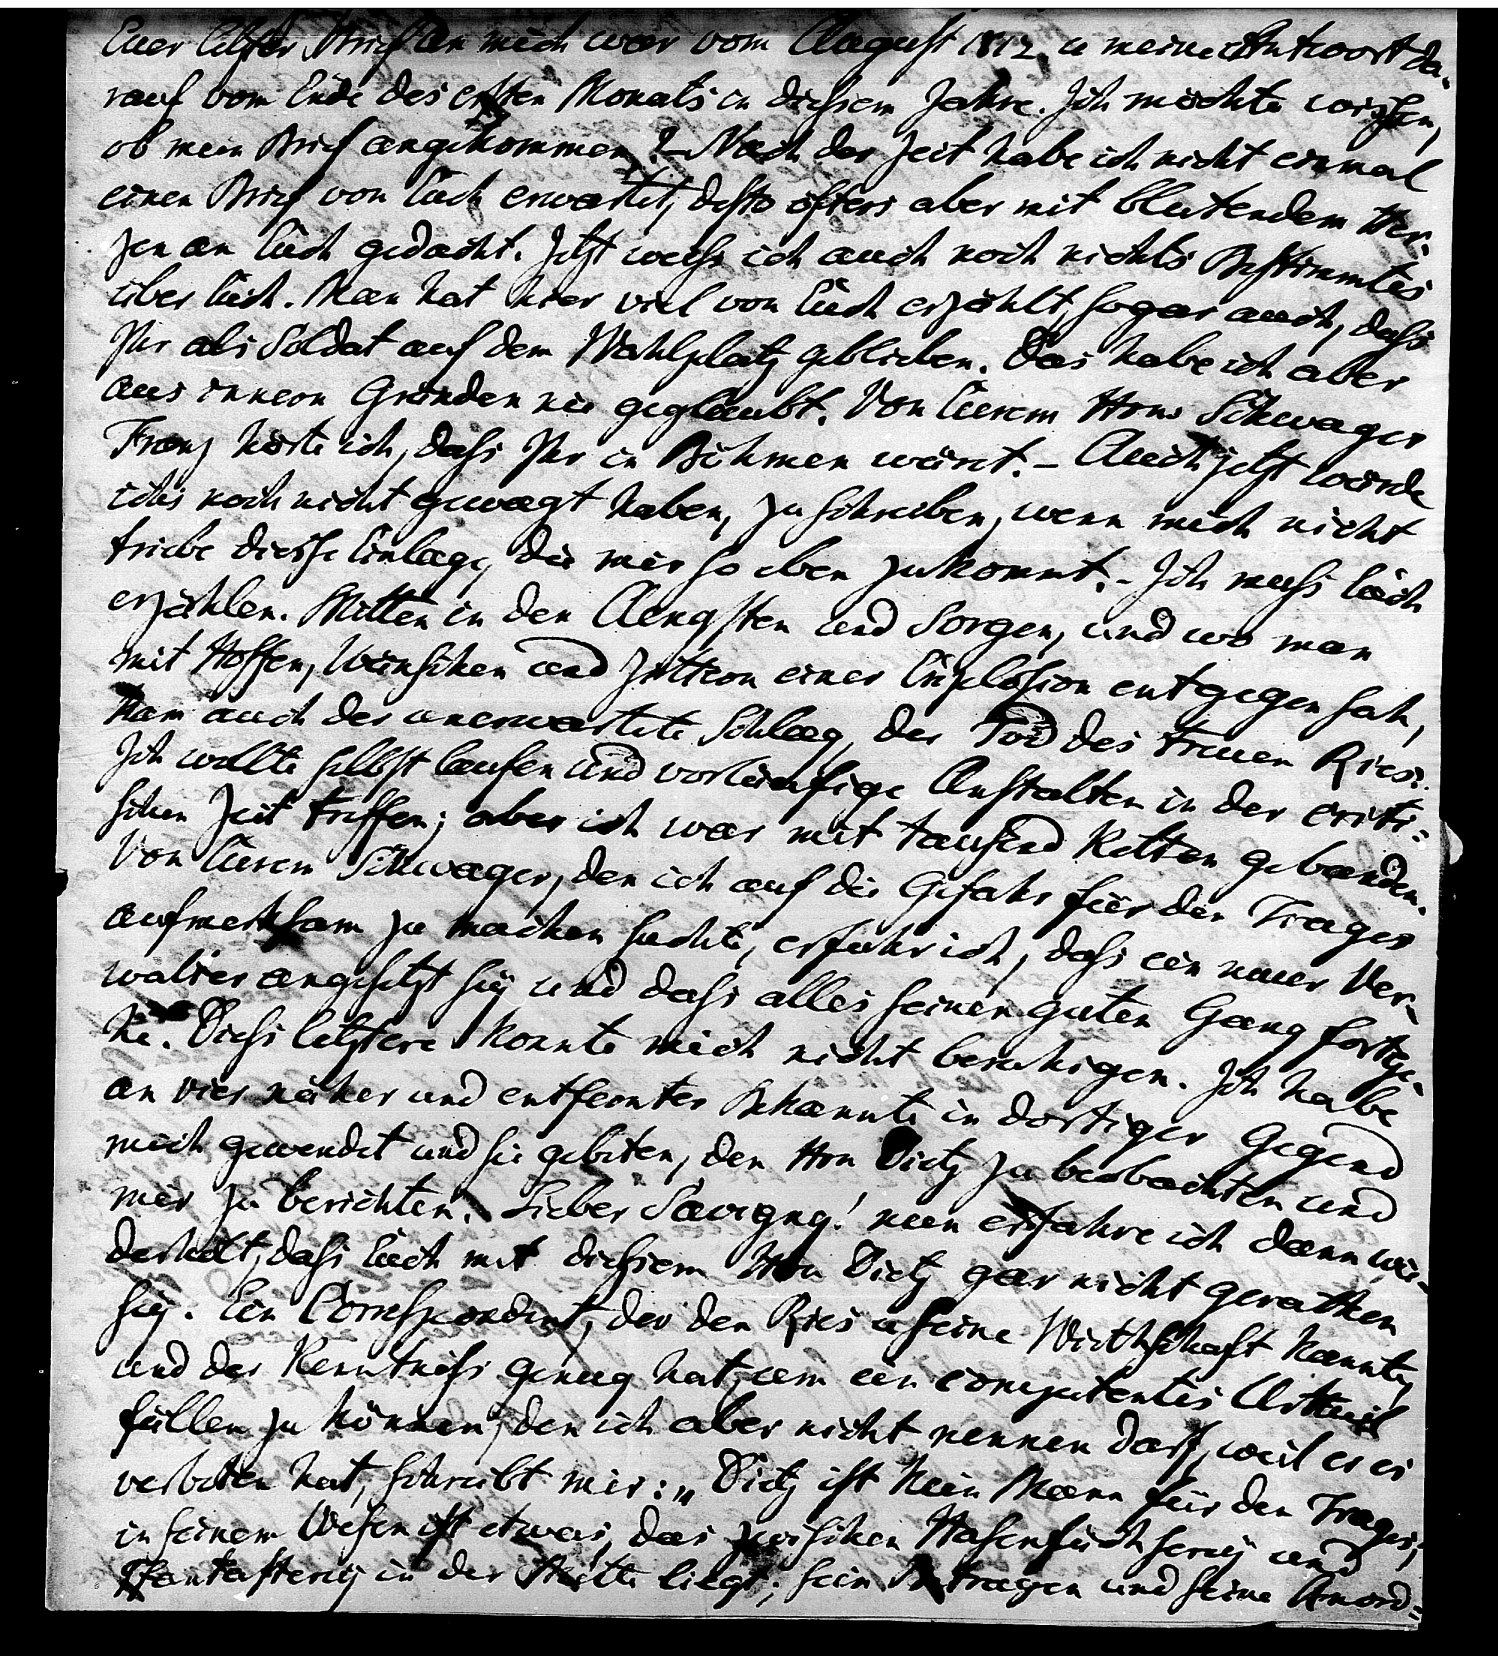 Euer letzter Brief an mich war vom August 1812, u meine Antwort da-
rauf vom Ende des ersten Monats in diesem Jahre. Ich möchte wissen,
ob mein Brief angekommen? – Nach der Zeit habe ich nicht einmal
einen Brief von Euch erwartet, desto öfters aber mit blutendem Her-
zen an Euch gedacht. Jetzt weiß ich auch noch nichts Bestimmtes
über Euch. Man hat hier viel von Euch erzählt, sogar auch, daß
Ihr als Soldat auf dem Wahlplatz geblieben. Das habe ich aber
aus innern Gründen nie geglaubt. Von Eurem Hrn. Schwager
Franz hörte ich, daß Ihr in Böhmen wäret. – Auch jetzt würde
ichs noch nicht gewagt haben, zu schreiben, wenn mich nicht
triebe diese Einlage, die mir so eben zukommt. – Ich muß Euch
erzählen. Mitten in den Aengsten und Sorgen, und wo man
mit Hoffen, Wünschen und Zittern einer Explosion entgegen sah,
kam auch der unerwartete Schlag, der Tod des treuen Ries.
Ich wollte selbst laufen und vorläufige Anstalten in der criti-
schen Zeit treffen; aber ich war mit tausend Ketten gebunden.
Von Eurem Schwager, den ich auf die Gefahr für den Trages
aufmerksam zu machen suchte, erfuhr ich, daß ein neuer Ver-
walter angesetzt sey und daß alles seinen guten Gang fortge-
he. Dieß letztere konnte mich nicht beruhigen. Ich habe
an vier näher und entfernter Bekannte in dortiger Gegend
mich gewendet und sie gebeten, den Hrn Dietz zu beobachten und
mir zu berichten. Lieber Savigny! nun erfahre ich dann wie-
derholt, daß Euch mit diesem Hrn Dietz gar nicht gerathen
sey. Ein Correspondent, der den Ries u seine Wirthschaft kannte,
und der Kenntniß genug hat, um ein competentes Urtheil
fällen zu können, den ich aber nicht nennen darf, weil er es
verboten hat, schreibt mir: „Dietz ist kein Mann für den Trages;
in seinem Wesen ist etwas, das zwischen Hasenfüchserey und
Phantasterey in der Mitte liegt; sein Betragen und seine Anord-